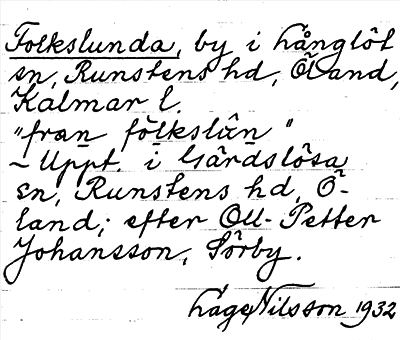 Folkslunda, by i Långlöt
sn, Runstens hd, Öland,
Kalmar l.
"fran fölkslũn"
~ Uppt. i Gärdslösa
sn, Runstens hd, Ö-
land; efter Oll-Petter
Johansson, Sörby.
Låge Nilsson 1932